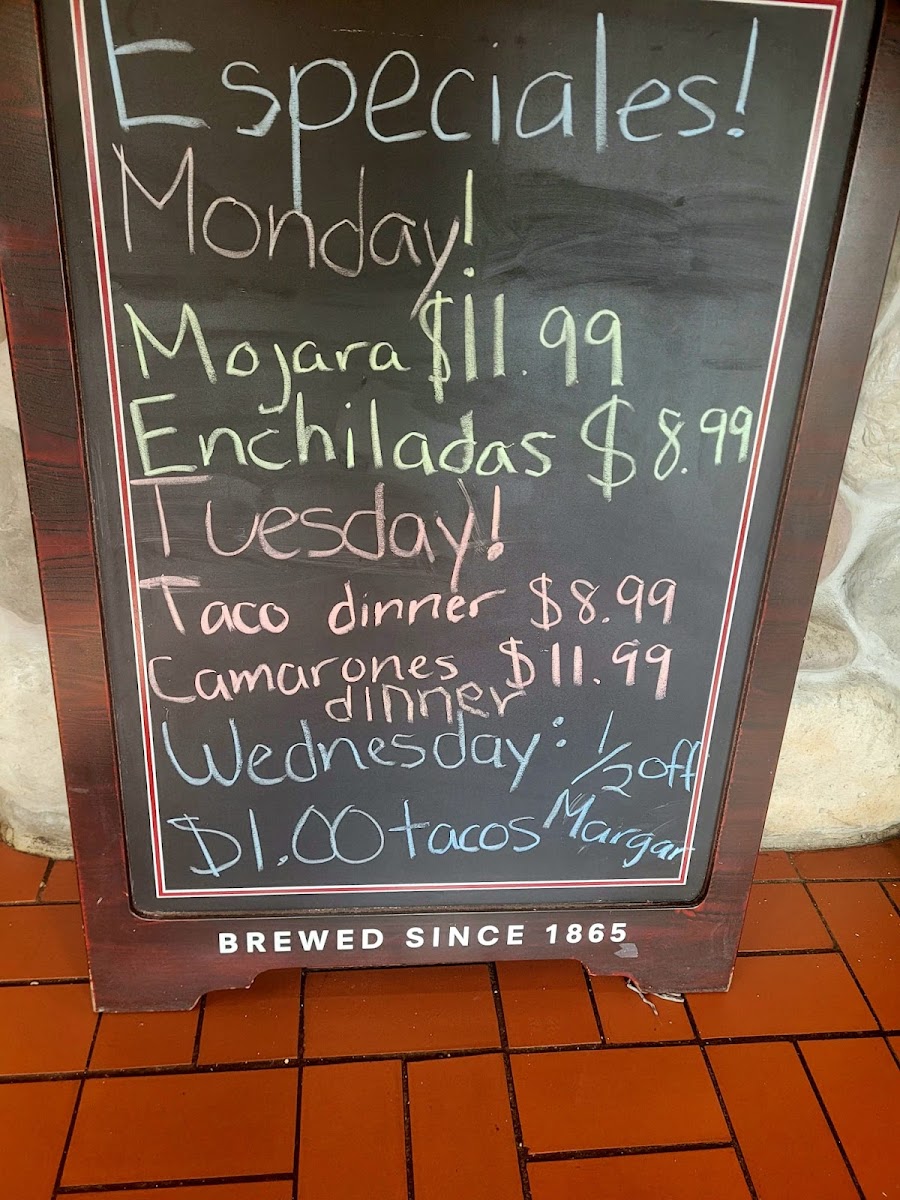 Especiales!
Monday!
Mojara $11.99
Enchiladas $8.99
Tuesday!
Taco dinner $8.99
Camarones $11.99
dinner
Wednesday: 1/2 off
$1.00 tacos Margar
BREWED SINCE 1865